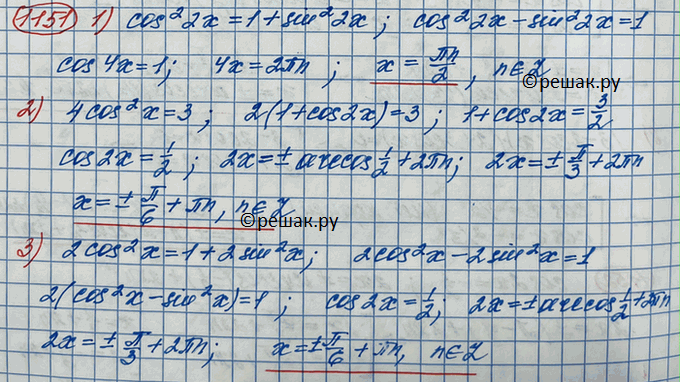 1151 1) cos²2x = 1 + sin²2x; cos²2x - sin²2x = 1
cos 4x = 1; 4x = 2πn; x = πn/2, n∈Z
©решак.ру
2) 4cos²x = 3; 2(1 + cos2x) = 3; 1 + cos2x = 3/2
cos2x = 1/2; 2x = ± arccos 1/2 + 2πn; 2x = ± π/3 + 2πn
x = ± π/6 + πn, n∈Z
©решак.ру
3) 2cos²x = 1 + 2sin²x; 2cos²x - 2sin²x = 1
2(cos²x - sin²x) = 1; cos2x = 1/2; 2x = ± arccos 1/2 + 2πn
2x = ± π/3 + 2πn; x = ± π/6 + πn, n∈Z